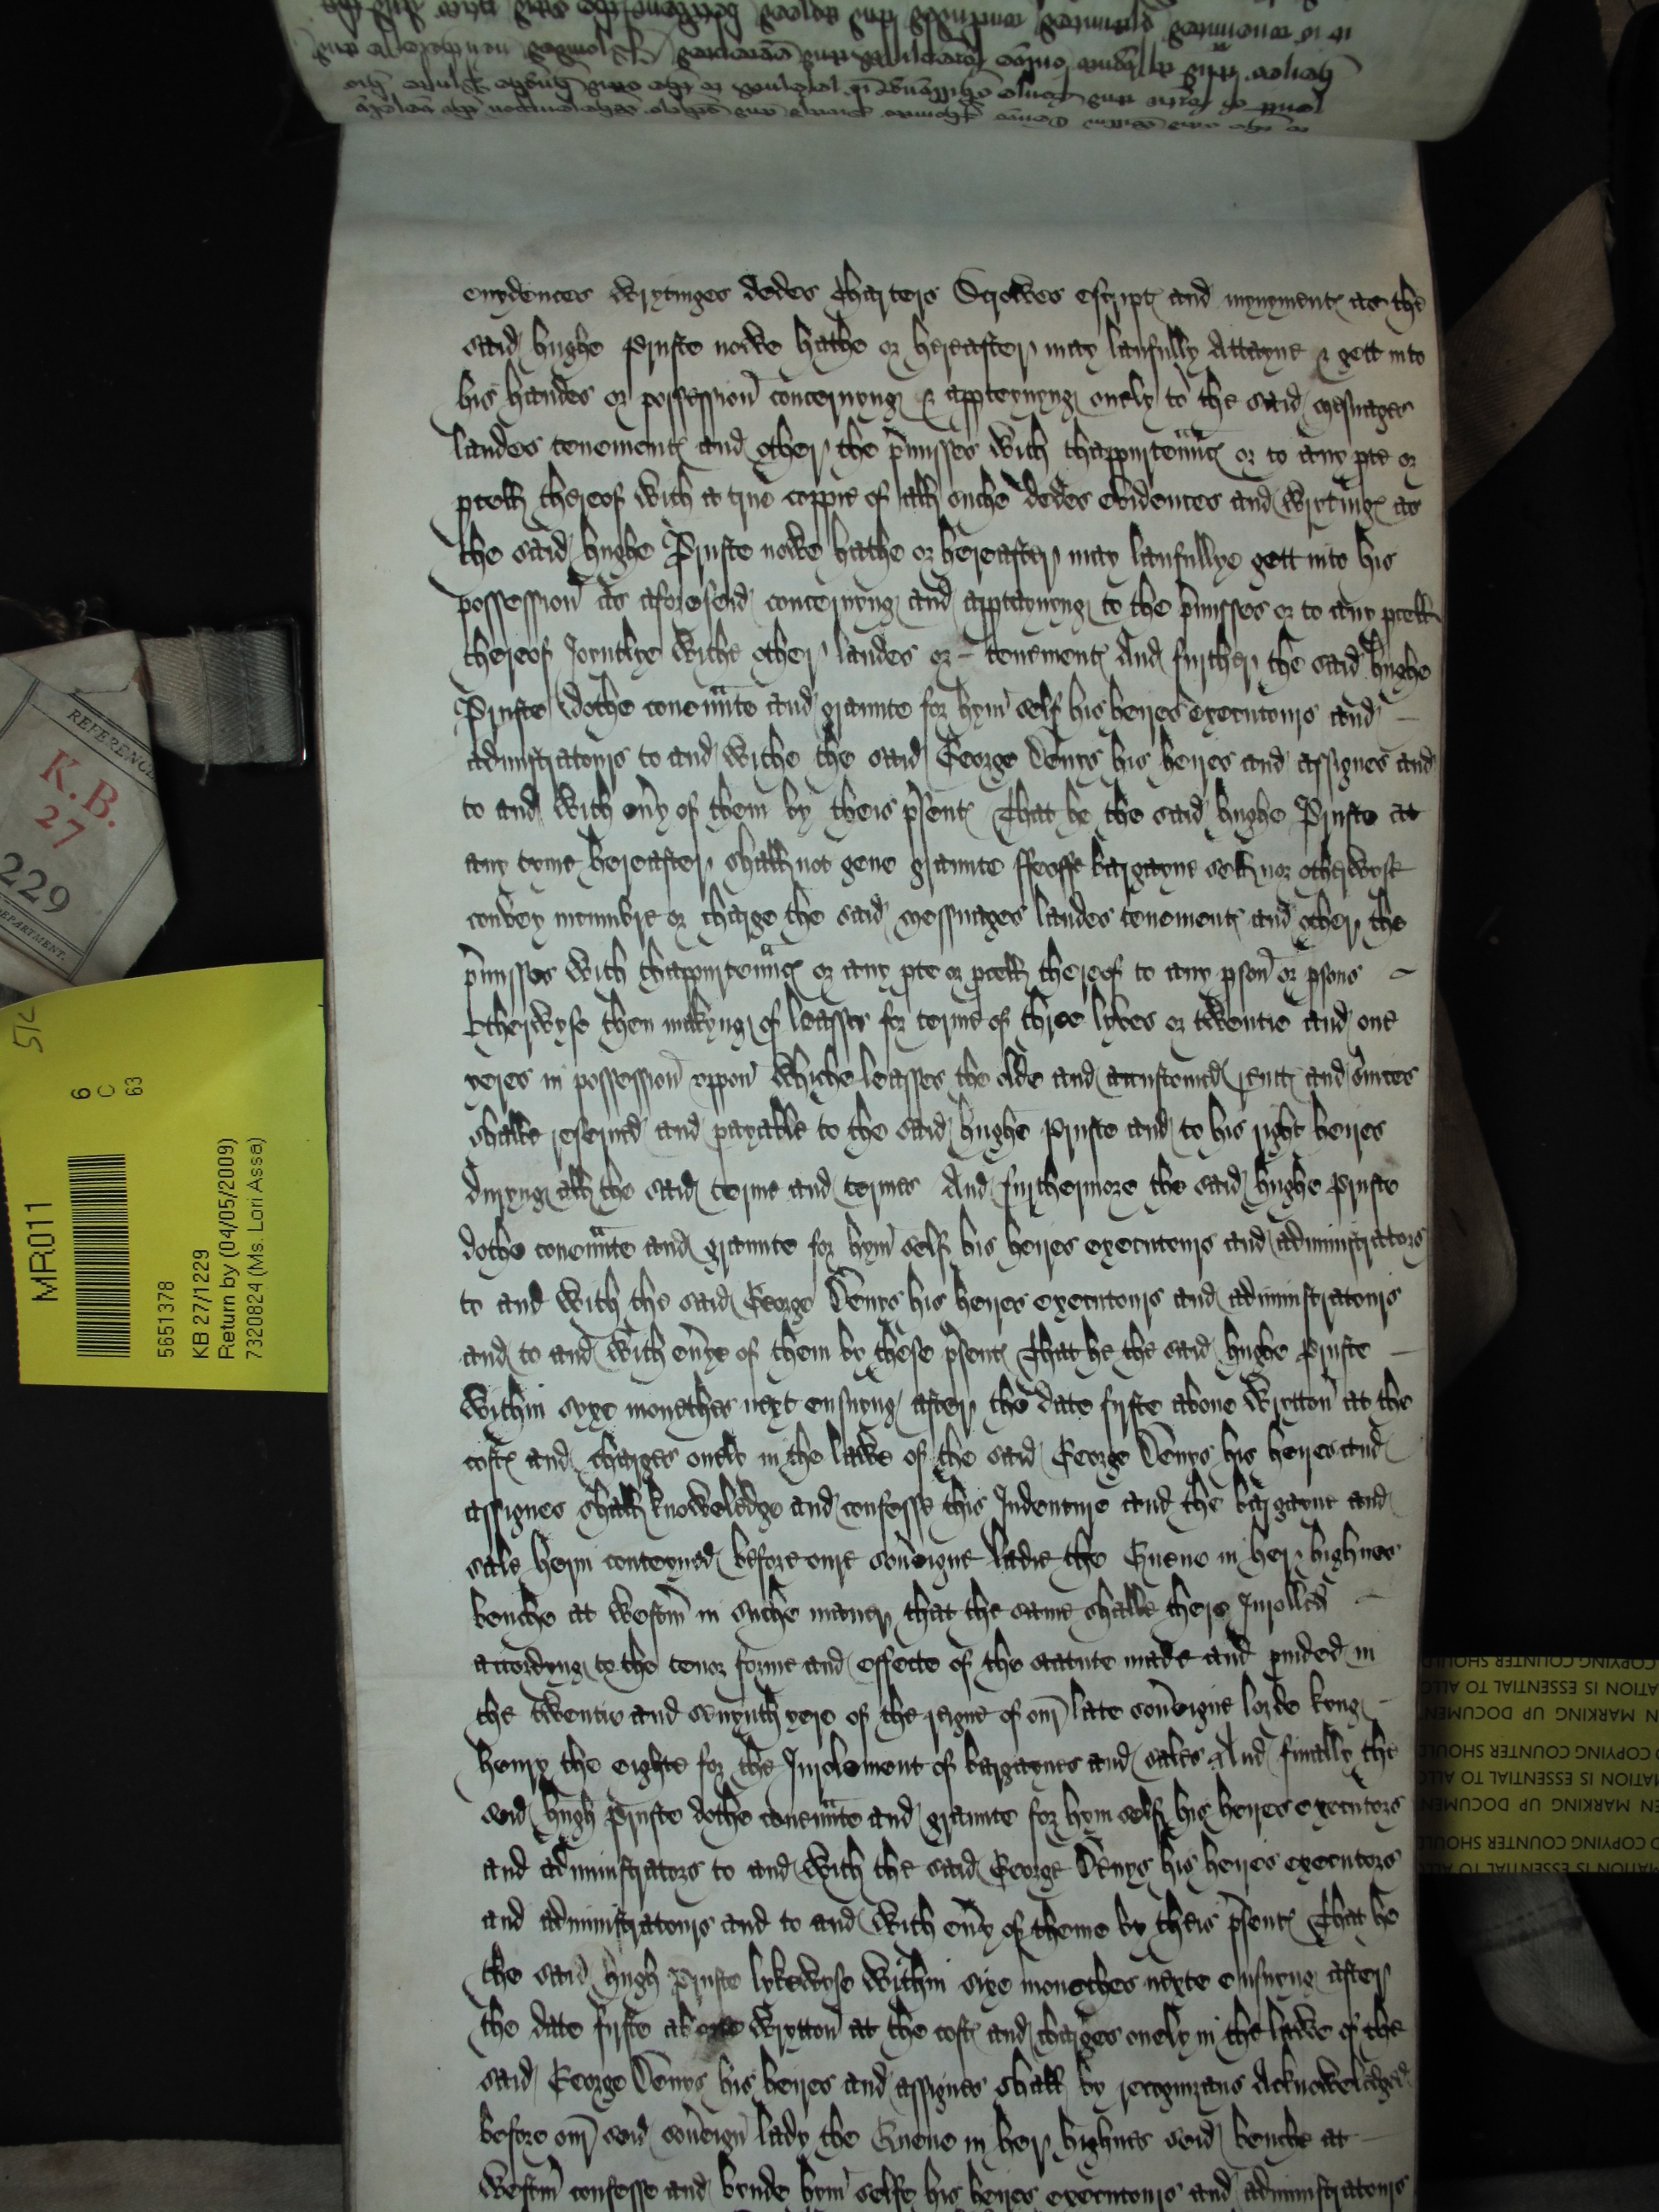 evydences wrytinges dedes Charters Scrowes escript and mynyment as the
said hughe Pruste nowe hathe or hereafter may laufully Attayne & gett into
his handes or possession concernyng & apperteynyng onely to the said mesuages
landes tenement and other the pmisses with thappurtennc or to any pte or
pcell thereof with a true coppie of all suche dedes evidences and writing as
the said hughe Pruste nowe hathe or hereafter may laufullye gett into his
possession as aforeseid concernyng and apptaynyng to the pmisses or to any pcell
thereof Joyntlye withe other landes or tenement And further the said hughe
Pruste dothe covennte and graunte for hym self his heires executours and
admistratours to and withe the said George Denys his heires and assignes and
to and with evy of them by theis psent That he the said hughe Pruste at
any tyme hereafter shall not geve graunte ffeoffe bargayne sell nor otherwyse
convey incumbre or charge the said messuages landes tenement and other the
pmisses with thappurtennc or any pte or pcell thereof to any pson or psons
otherwyse then makyng of leasses for terme of three lyves or twentie and one
yeres in possession uppon whiche leasses the olde and accustomed rent and svices
shalbe reserved and payable to the said hughe Pruste and to his right heires
duryng all the said terme and termes And furthermore the said hughe Pruste
dothe covennte and graunte for hym self his heires executours and administrators
to and with the said George Denys his heires executours and administratours
and to and with evye of them by these psent That he the said hughe Pruste
within syxe monethes next ensuyng after the date fyrste above wrytton at the
cost and charges onely in the lawe of the said George Denys his heires and
assignes shall knoweledge and confesse this Indenture and the bargayne and
sale herin conteyned before oure sovereigne ladie the Quene in her highnes
benche at westm in suche maner that the same shalbe there Inrolled
accordyng to the tenor forme and effecte of the statute made and pvided in
the twentie and sevynth yere of the reigne of our late sovereigne lorde kyng
henry the eighte for the Inrolement of bargaynes and sales And finally the
seid hugh Pruste dothe covennte and graunte for hym self his heires executors
and administrators to and with the said George Denys his heires executors
and administratours and to and with evy of theme by theis psent That he
the said hugh Pruste lykewyse within sixe monethes nexte ensuyng after
the date fyrste above wrytton at the cost and charges onely in the lawe of the
said George Denys his heires and assignes shall by recognizans Acknowelaged
before our seid sovereign lady the Quene in her highnes seid benche at
westm confesse and bynde hym selfe his heires executours and administratours
REFERENCE
K.B.
27
229
DEPARTMENT.
MR011
6
C
63
5651378
KB 27/1229
Return by (04/05/2009)
7320824 (Ms. Lori Assa)